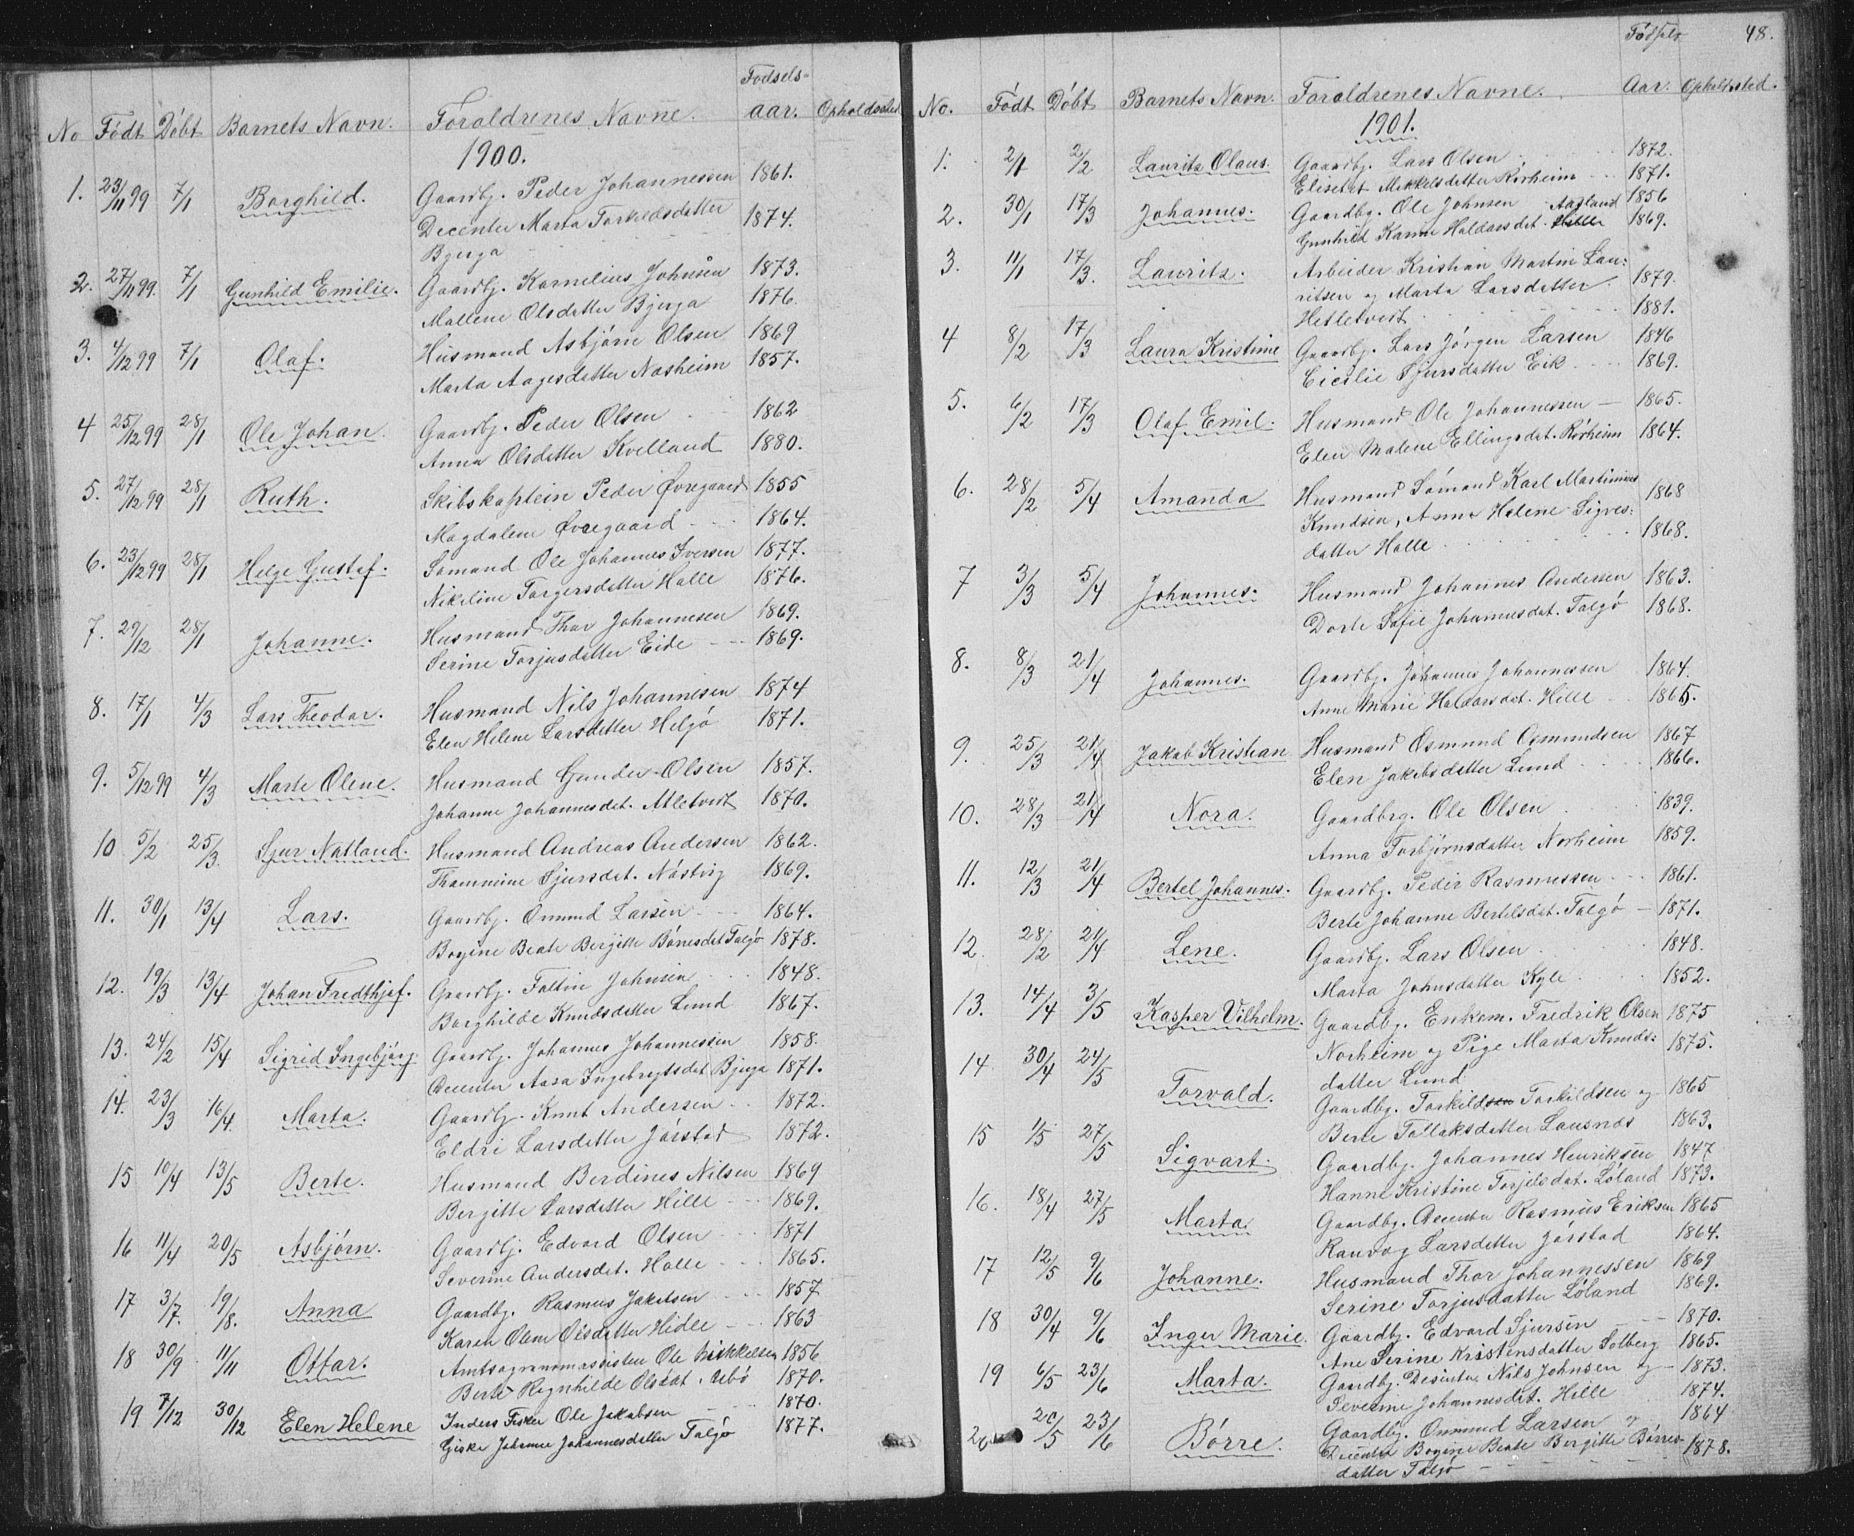 No Födt Döbt Barnets Navn. Foraldrenes Navne. Fodsels- aar. Opholdssted
1900.
1. 23/11 99 7/1 Borghild. Gaardbj. Peder Johannessen 1861.
Decenter Marta Torkedsdatter 1874.
Bjerga
2. 27/11 99. 7/1 Gunhild Emilie. Gaardbj. Kornelius Johnsen 1873.
Mallene Olsdatter Bjerga 1876.
3. 4/12 99 7/1 Olaf. Husmand Asbjørn Olsen 1869
Marta Aagesdatter Nosheim 1857.
4 25/12 99 28/1 Ole Johan. Gaardbj. Peder Olsen 1862
Anna Olsdatter Kvelland 1880.
5. 27/12 99 28/1 Ruth. Skibskaptein Peder Øvregaard 1855
Magdalene Øvregaard 1864.
6. 23/12 99 28/1 Helge Gustaf. Sømand Ole Johannes Iversen 1877.
Nikeline Torgersdatter Halle 1876.
7. 29/12 28/1 Johanne. Husmand Thor Johannesen 1869.
Serine Torjusdatter Eide 1869.
8. 17/1 4/3 Lars Theodor. Husmand Nils Johannesen 1874
Elen Helene Larsdatter Helgø 1871.
9. 5/12 99 4/3 Marte Olene. Husmand Gunder Olsen 1857.
Johanne Johannesdet. Atletveit 1870.
10 5/2 25/3 Sjur Natland. Husmand Andreas Andersen 1862.
Thommine Sjursdat. Nåstvig 1869.
11. 30/1 13/4 Lars. Gaardbj. Omund Larsen 1864.
Bogine Beate Bergitte Børresdet Talgø 1878.
12. 19/3 13/4 Johan Fredthjof. Gaardbj. Foltin Johnsen 1848.
Borghilde Knudsdatter Lund 1867.
13. 24/2 15/4 Sigrid Ingebjørg. Gaardbj. Johannes Johannessen 1858.
Decenter Aasa Ingebregtsdet Bjerga 1871.
14. 23/3 16/4 Marta. Gaardbj. Knut Andersen 1872.
Eldri Larsdatter Jørstad 1872.
15 10/4 13/5 Berte. Husmand Berdines Nilsen 1869
Bergitte Larsdatter Hille 1869.
16 11/4 20/5 Asbjørn. Gaardbj. Edvard Olsen 1871
Severine Andersdet. Halle 1865.
17 3/7. 19/8. Anna Gaardbj. Rasmus Jakobsen 1857
Karen Olene Olsdatter Hidle 1863
18 30/9 11/11 Ottar. Amtsagronomassisten Ole Mikkelsen 1856
Berte Regnhilde Olsdat. Ubø 1870.
19 7/12 30/12 Elen Helene Inders Fisker Ole Jakobsen 1870.
Giske Johanne Johannesdatter Talgø 1877.
48.
No. Födt Döbt Barnets Navn. Foraldrenes Navne. Födsels Aar. Opholdssted.
1901.
1. 2/1 2/2 Lauritz Olaus. Gaardbj. Lars Olsen 1872.
Elisebet Mekkelsdatter Rørheim 1871.
2. 30/1 17/3 Johannes. Gaardbg. Ole Johnsen Aagland 1856
Gunhild Karine Haldorsdet. Hille 1869.
3. 11/1 17/3. Lauritz. Arbeider Kristian Martin Lau-
ritsen og Marta Larsdatter 1879.
Hetletveit 1881.
4 8/2 17/3 Laura Kristine Gaardbj. Lars Jørgen Larsen 1846
Cicilie Sjursdatter Eik 1869.
5. 6/2 17/3 Olaf Emil. Husmand Ole Johannessen 1865.
Elen Malene Ellingsdat. Rørheim 1864.
6. 28/2 5/4 Amanda Husmand Sømand Karl Martinius 1868
Knudsen, Anne Helene Sigves-
datter Halle 1868.
7 3/3 5/4 Johannes. Husmand Johannes Andersen 1863.
Dorte Sofie Johannesdat. Talgø 1868.
8. 8/3 21/4 Johannes. Gaardbj. Johannes Johannessen 1864.
Anne Marie Haldorsdet. Hille 1865.
9. 25/3 21/4 Jakob Kristian Husmand Osmund Osmundsen 1867
Elen Jakobsdatter Lund 1866.
10. 28/3 21/4 Nora. Gaardbrg. Ole Olsen 1839.
Anna Torbjørnsdatter Norheim 1859.
11. 12/3 21/4 Bertel Johannes. Gaardbj. Peder Rasmussen 1861.
Berte Johanne Bertelsdet. Talgø 1871.
12. 28/2 21/4 Lene. Gaardbj. Lars Olsen 1848.
Marta Johnsdatter Kyle 1852.
13. 14/4 3/5 Kasper Vilhelm. Gaardbg. Enkem. Fredrik Olsen 1875
Norheim og Pige Marta Knuds- 1875.
datter Lund
14 30/4 24/5 Torvald. Gaardbg. Torkildsen Torkildsen og 1865
Berte Tollaksdatter Lausnæs 1863.
15 1/5 27/5 Sigvart. Gaardbj. Johannes Henriksen 1847
Hanne Kristine Torjelsdat. Løland 1873.
16. 18/4 27/5 Marta. Gaardbg. Decenter Rasmus Eriksen 1865
Ranvog Larsdatter Jørstad 1864.
17 12/5 9/6 Johanne. Husmand Thor Johannessen 1869
Serine Torjusdatter Løland 1869.
18 30/4 9/6 Inger Marie. Gaardbj. Edvard Sjursen 1870.
Ane Serine Kristensdatter Solberg 1865.
19 6/5 23/6 Marta. Gaardbj. Desinter Nils Johnsen og 1873.
Severine Johannesdet. Hille 1874.
20 20/5 23/6 Børre. Gaardbg. Ommund Larsen og 1864
Decenter Bogine Beate Bergitte Børres- 1878.
datter Talgø